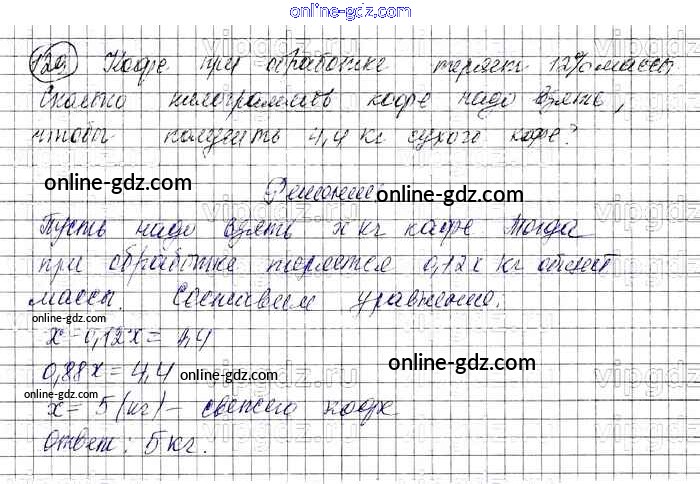 online-gdz.com
129 Кофе при обработке теряет 12% массы
Сколько килограммов кофе надо взять,
чтобы получить 4,4 кг сухого кофе?
online-gdz.com
Решение
online-gdz.com
Пусть надо взять x кг кофе Тогда
при обработке теряется 0,12x кг
массы. Составим уравнение.
online-gdz.com
x-0,12x=4,4
online-gdz.com
0,88x=4,4 online-gdz.com
online-gdz.com
x=5(кг)- свежего кофе
online-gdz.com
Ответ: 5кг.